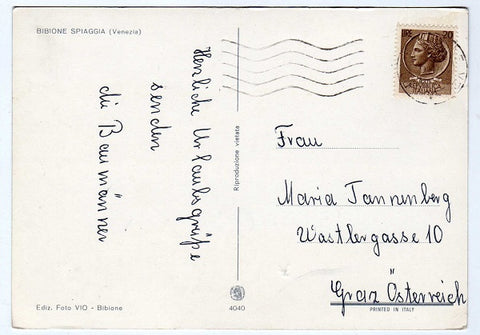 BIBIONE SPIAGGIA (Venezia)
Herzliche Urlaubsgrüße
senden
die Baumänner
Riproduzione vietata
20
Frau
Maria Tannenberg
Wastlergasse 10
Graz Österreich
Ediz. Foto VIO - Bibione
4040
PRINTED IN ITALY